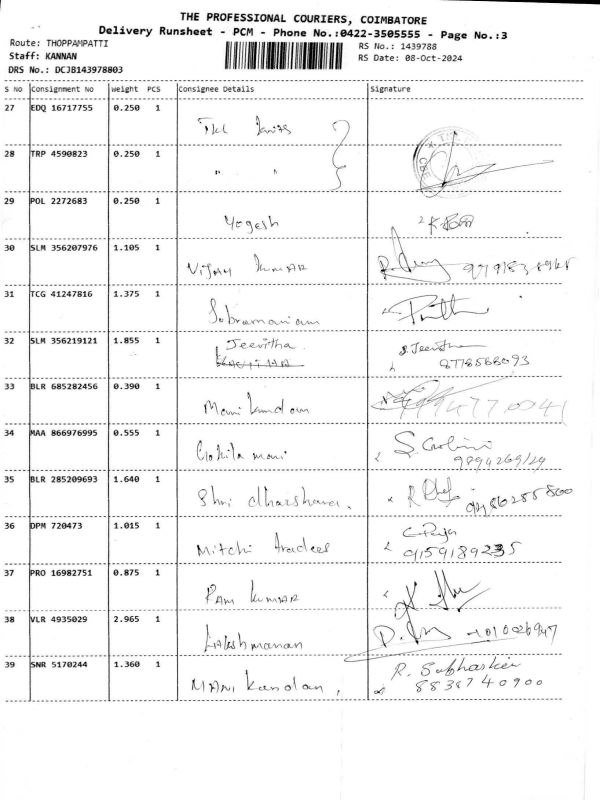 THE PROFESSIONAL COURIERS, COIMBATORE
Delivery Runsheet - PCM - Phone No.:0422-3505555 - Page No.:3
Route: THOPPAMPATTI
RS No.: 1439788
Staff: KANNAN
RS Date: 08-Oct-2024
DRS No.: DCJB143978803
S No Consignment No Weight PCS Consignee Details Signature
27 EDQ 16717755 0.250 1
28 TRP 4590823 0.250 1 " "
29 POL 2272683 0.250 1 Yogesh
30 SLM 356207976 1.105 1 Vijay Kumar
31 TCG 41247816 1.375 1 Subramaniam
32 SLM 356219121 1.855 1 Jeevitha S. Jeevitha
8778568093
33 BLR 685282456 0.390 1 Manikandan
34 MAA 866976995 0.555 1 Gokila mani
9894269129
35 BLR 285209693 1.640 1 Shri dharshana.
36 DPM 720473 1.015 1 Mitchi Tradees
9159189235
37 PRO 16982751 0.875 1 Ram Kumar
38 VLR 4935029 2.965 1 Lakshmanan
39 SNR 5170244 1.360 1 Mani Kandan, R. Subhasker
8838740900